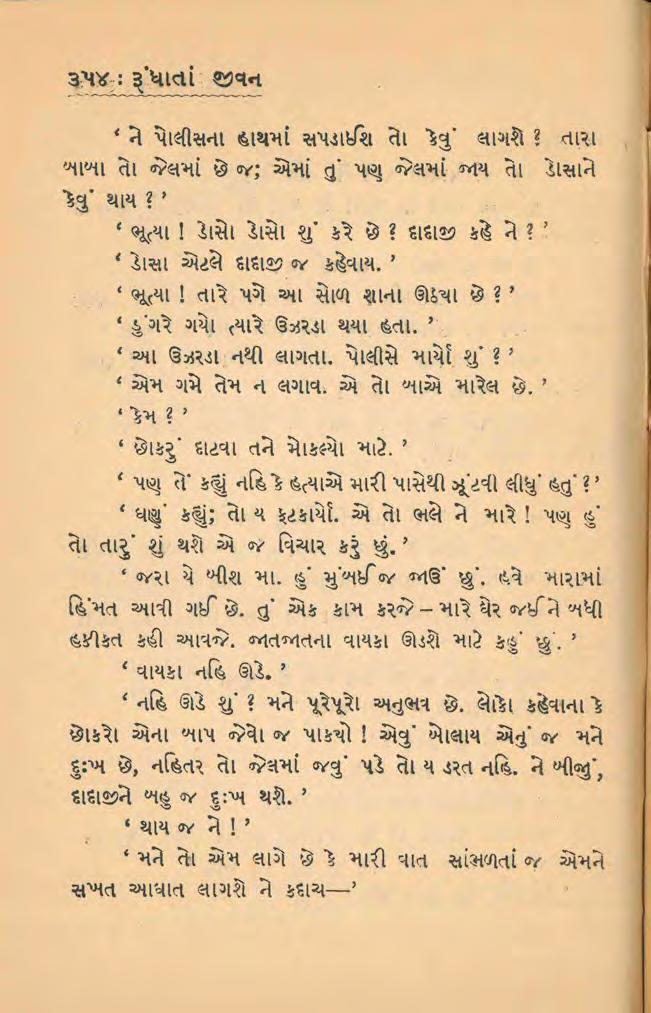 ૩૫૪ : રૂંધાતાં જીવન
‘ ને પોલીસના હાથમાં સપડાઈશ તો કેવું લાગશે ? તારા
બાબા તો જેલમાં છે જ; એમાં તું પણ જેલમાં જાય તો ડોસાને
કેવું થાય ? ’
‘ ભૂત્યા ! ડોસો ડોસો શું કરે છે ? દાદાજી કહે ને ? ’
‘ ડોસા એટલે દાદાજી જ કહેવાય. ’
‘ ભૂત્યા ! તારે પગે આ સોળ શાના ઊઠ્યા છે ? ’
‘ ડુંગરે ગયો ત્યારે ઉઝરડા થયા હતા. ’
‘ આ ઉઝરડા નથી લાગતા. પોલીસે માર્યો શું ? ’
‘ એમ ગમે તેમ ન લગાવ. એ તો બાએ મારેલ છે. ’
‘ કેમ ? ’
‘ છોકરું દાટવા તને મોકલ્યો માટે. ’
‘ પણ તેં કહ્યું નહિ કે હત્યાએ મારી પાસેથી ઝૂંટવી લીધું હતું ? ’
‘ ઘણું કહ્યું; તો ય ફટકાર્યો. એ તો ભલે ને મારે ! પણ હું
તો તારું શું થશે એ જ વિચાર કરું છું. ’
‘ જરા યે બીશ મા. હું મુંબઈ જ જાઉં છું. હવે મારામાં
હિંમત આવી ગઈ છે. તું એક કામ કરજે – મારે ઘેર જઈને બધી
હકીકત કહી આવજે. જાતજાતના વાયકા ઊડશે માટે કહું છું. ’
‘ વાયકા નહિ ઊડે. ’
‘ નહિ ઊડે શું ? મને પૂરેપૂરો અનુભવ છે. લોકો કહેવાના કે
છોકરો એના બાપ જેવો જ પાક્યો ! એવું બોલાય એનું જ મને
દુઃખ છે, નહિતર તો જેલમાં જવું પડે તો ય ડરત નહિ. ને બીજું,
દાદાજીને બહુ જ દુઃખ થશે. ’
‘ થાય જ ને ! ’
‘ મને તો એમ લાગે છે કે મારી વાત સાંભળતાં જ એમને
સખત આઘાત લાગશે ને કદાચ—’